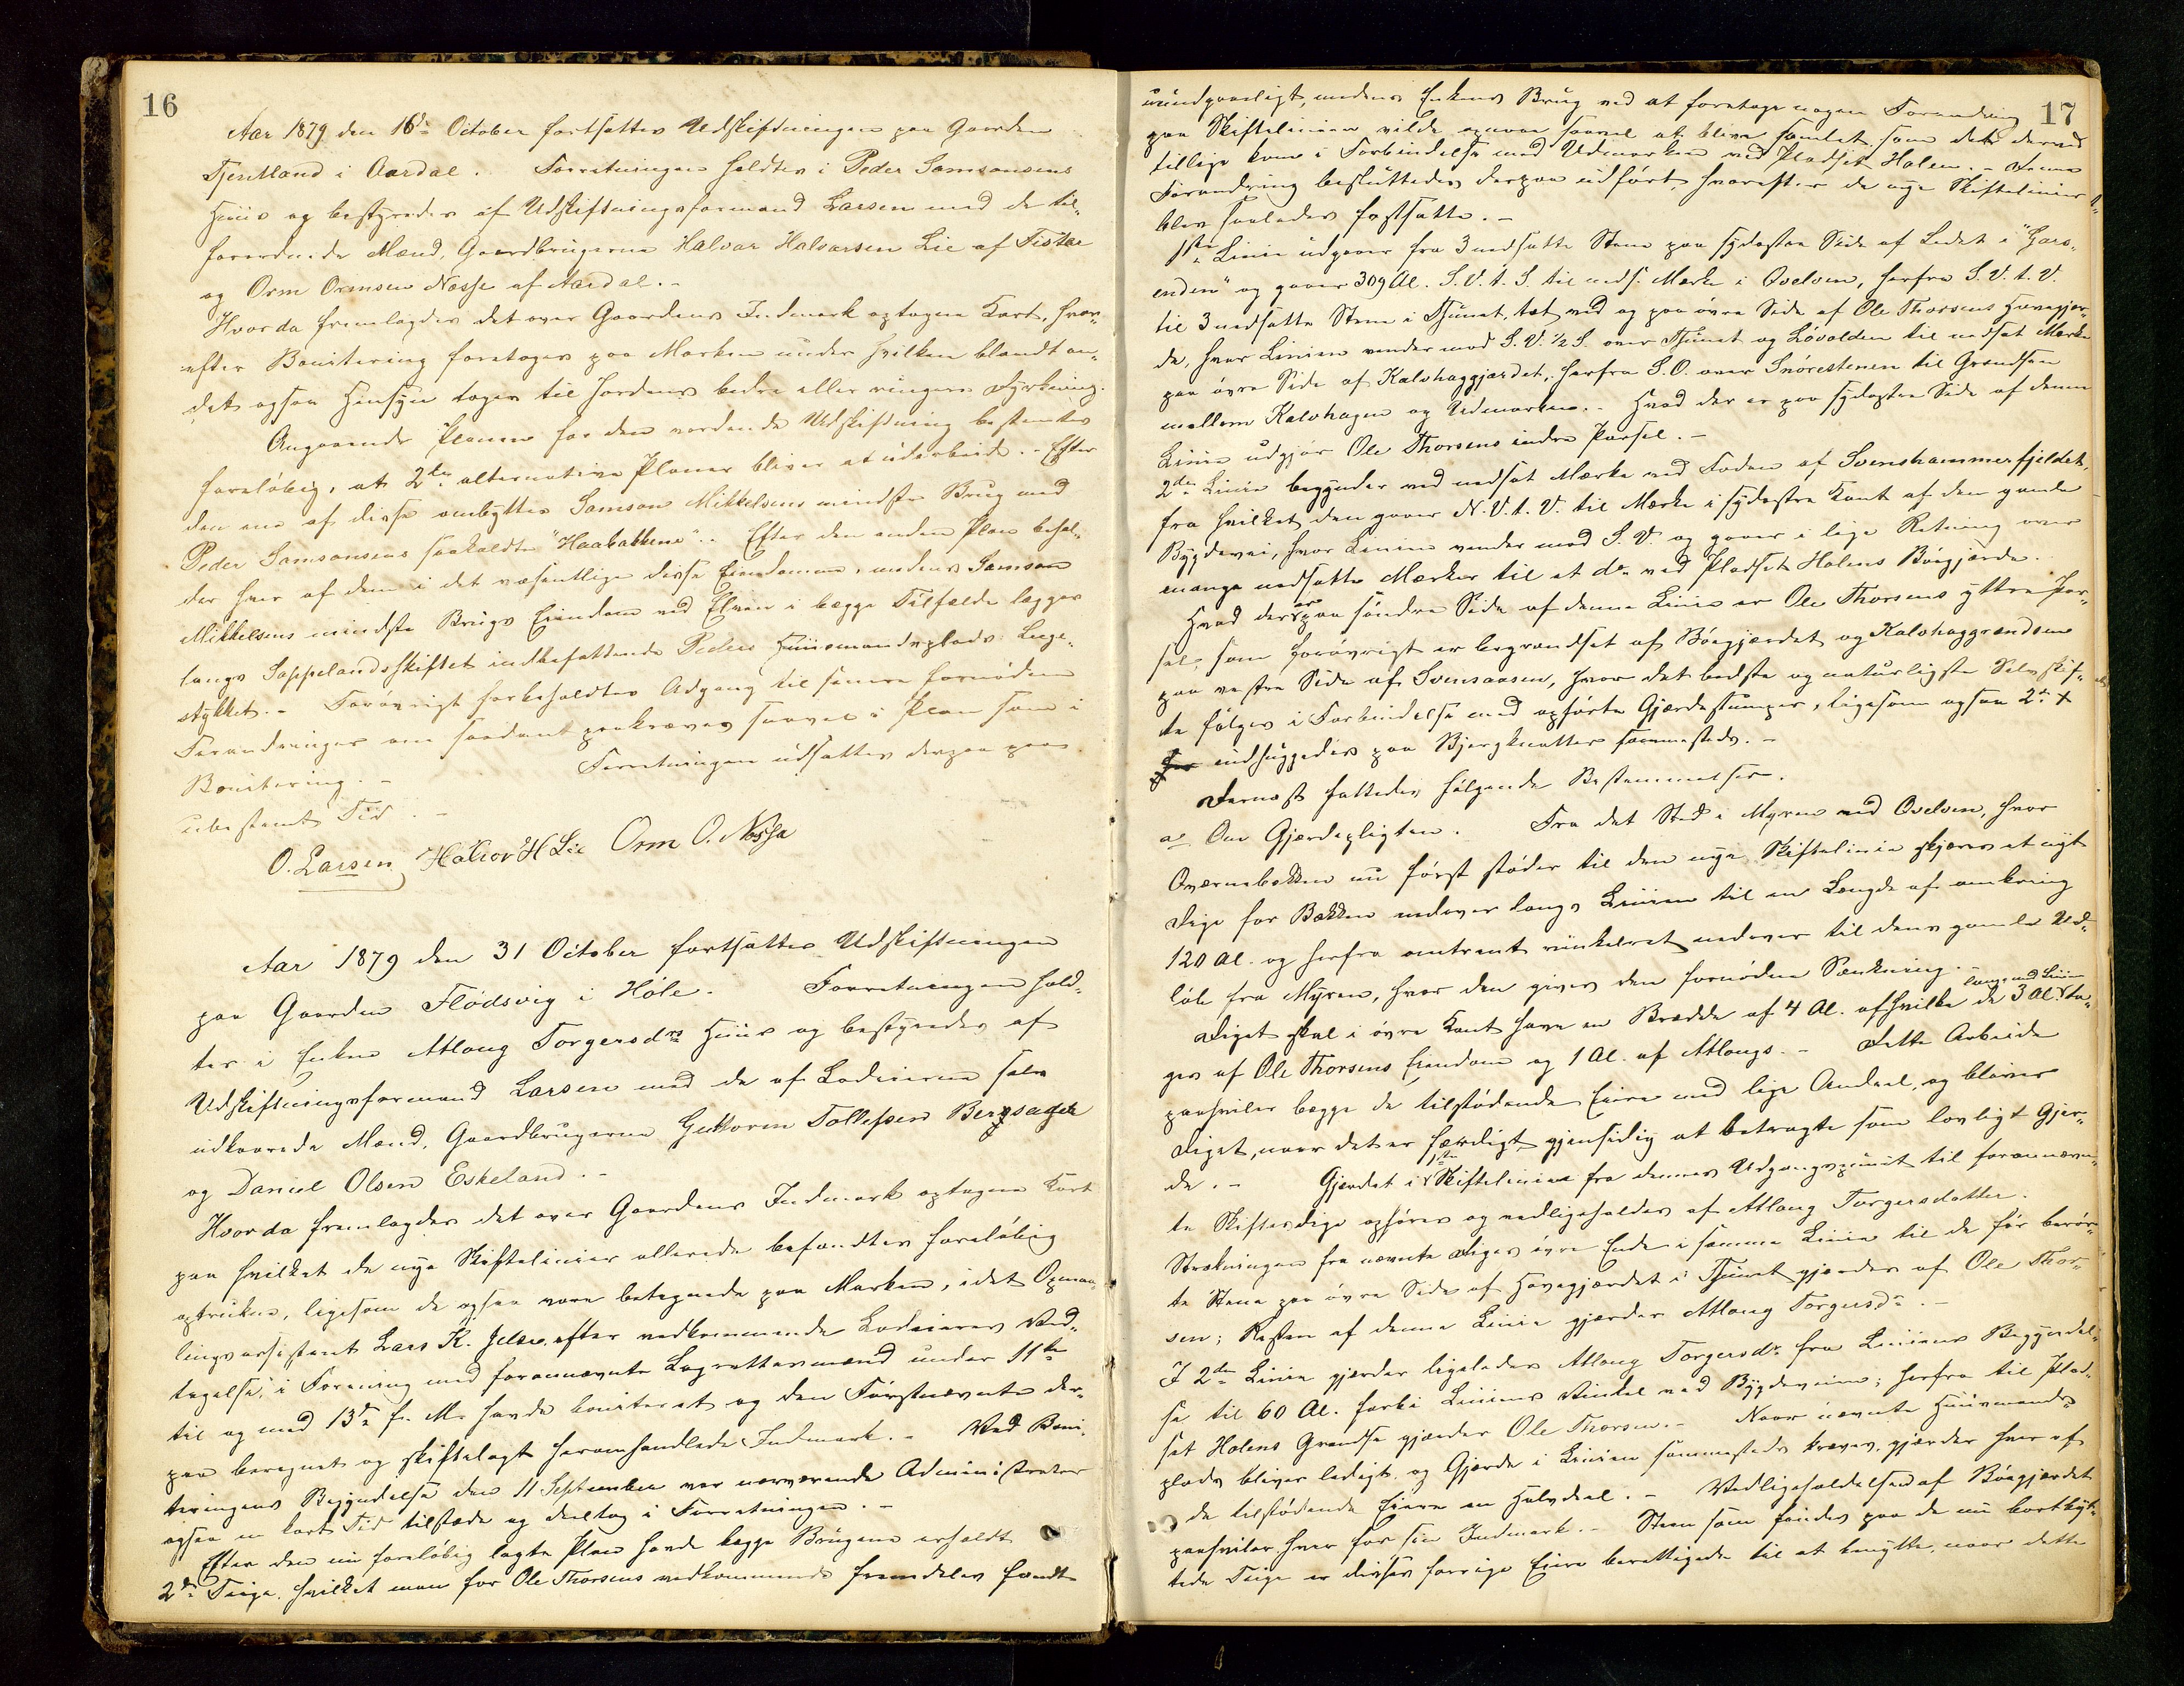 16
Aar 1879 den 16de October fortsattes Udskiftningen paa Gaarden
Tjentland i Aardal. Forretningen holdtes i Peder Samsonsens
Huus og bestyredes af Udskiftningsformand Larsen med de til-
forordnede Mænd, Gaardbrugerne Halvar Halvarsen Lie af Fister
og Orm Ormsen Nesse af Aardal.-
Hvorda fremlagdes det over Gaardens Indmark optagne Kart, hvor-
efter Bonitering foretoges paa Marken under hvilken blandt an-
det ogsaa Hensyn toges til Jordens bedre eller ringere Dyrkning.
Angaaende Planen for den vordende Udskiftning bestemtes
foreløbig, at 2de alternative Planer bliver at udarbeide.- Efter
den ene af disse ombyttes Samson Mikkelsens mindste Brug med
Peder Samsonsens saakaldte "Haabakkene".- Efter den anden Plan behol-
der hver af dem i det væsentlige disse Eiendomme, medens Samson
Mikkelsens mindste Brugs Eiendom ved Elven i begge Tilfælde lægges
langs Sappelandsskiftet indbefattende Peders Huusmandsplads
stykket.- Forøvrigt forbeholdtes Adgang til senere fornødne
Forandringer om saadant paakræves saavel i Plan som i
Bonitering.- Forretningen udsattes derpaa paa
ubestemt Tid.-
O. Larsen Halvor H Lie Orm O. Nesse
Aar 1879 den 31 October fortsattes Udskiftningen
paa Gaarden Flødsvig i Høle. Forretningen hold-
tes i Enken Atlaug Torgersdrs Huus og bestyredes af
Udskiftningsformand Larsen med de af Lodeierne selv
udkaarede Mænd, Gaardbrugerne Guttorm Tollefsen Bergsager
og Daniel Olsen Eskeland.-
Hvorda fremlagdes det over Gaardens Indmark optagne Kart
paa hvilket de nye Skiftelinier allerede befandtes foreløbig
optrukne, ligesom de ogsaa vare betegnede paa Marken, idet Opmaa-
lingsassistent Lars K. Jelsa, efter vedkommende Lodeieres Ved-
tagelse, i Forening med forannævnte Lagrettesmænd under 11te
til og med 13de f. M. havde boniteret og den Førstnævnte der-
paa beregnet og skiftelagt heromhandlede Indmark.- Ved Boni-
teringens Begyndelse den 11 September var nærværende Administrator
ogsaa en kort Tid tilstede og deeltog i Forretningen.-
Efter den nu foreløbig lagte Plan havde begge Brugene erholdt
2de Teige, hvilket man for Ole Thorsens vedkommende fremdeles fandt
17
uundgaaeligt, medens Enkens Brug ved at foretage nogen Forandring
paa Skiftelinien vilde opnaa saavel at blive samlet som det derved
tillige kom i Forbindelse med Udmarken ved Pladset Holen.- Denne
Forandring besluttedes derpaa udført, hvorefter de nye Skiftelinier
blev saaledes fastsatte.-
1ste Linie udgaaer fra 3 nedsatte Stene paa sydøstre Side af Ledet i "Gars-
enden" og gaaer 309 Al. S.V.t.S. til neds. Mærke i Qvelven, herfra S.V.t.V.
til 3 nedsatte Stene i Thunet, tæt ved og paa øvre Side af Ole Thorsens Havegjær-
de, hvor Linien vender mod S.V. 1/2 S. over Thunet og Løvolden til nedsat Mærke
paa øvre Side af Kalvhaggjærdet, herfra S.O. over Snørestenen til Grændsen
mellem Kalvhagen og Udmarken.- Hvad der er paa sydøstre Side af denne
Linie udgjør Ole Thorsens indre Parsel.-
2den Linie begynder ved nedsat Mærke ved Foden af Svenshammerfjeldet,
fra hvilket den gaaer N.V.t.V. til Mærke i sydøstre Kant af den gamle
Bygdevei, hvor Linien vender mod S.V. og gaaer i lige Retning over
mange nedsatte Mærker til et do ved Pladset Holens Bøegjærde.
Hvad der er paa søndre Side af denne Linie er Ole Thorsens yttre Par-
sel, som forøvrigt er begrændset af Bøegjærdet og Kalvhaggrændsen
paa vestre Side af Svensaasen, hvor det bedste og naturligste Selvskif-
te følges i Forbindelse med opførte Gjærdestumper, ligesom ogsaa 2de X
indhuggedes paa Bjergknatter sammesteds.-
Dernæst fattedes følgende Bestemmelser.
a. Om Gjærdepligten. Fra det Sted i Myren ved Qvelven, hvor
Qværnebækken nu først støder til den nye Skiftelinie skjæres et nyt
Dige for Bækken nedover langs Linien til en Længde af omkring
120 Al. og herfra omtrent vinkelret nedover til dens gamle Ud-
løb fra Myren, hvor den gives den fornødne Sænkning.-
Diget skal i øvre Kant have en Bredde af 4 Al. af hvilke de 3 Al. langsmed Linien ta-
ges af Ole Thorsens Eiendom og 1 Al. af Atlaugs.- Dette Arbeide
paahviler begge de tilstødende Eiere med lige Andeel, og bliver
Diget, naar det er færdigt, gjensidig at betragte som lovligt Gjær-
de.- Gjærdet i 1ste Skiftelinie fra dennes Udgangspunkt til forannævn-
te Skiftesdige opføres og vedligeholdes af Atlaug Torgersdatter.
Strækningen fra nævnte Diges øvre Ende i samme Linie til de før berør-
te Stene paa øvre Side af Havegjærdet i Thunet gjærdes af Ole Thor-
sen; Resten af denne Linie gjærder Atlaug Torgersdr.-
I 2den Linie gjærder ligeledes Atlaug Torgersdr. fra Liniens Begyndel-
se til 60 Al. forbi Liniens Vinkel ved Bygdeveien; herfra til Plad-
set Holens Grændse gjærder Ole Thorsen.- Naar nævnte Huusmands-
plads bliver ledigt, og Gjærde i Linien sammesteds kræves, gjærder hver af
de tilstødende Eiere en Halvdeel.- Vedligeholdelsen af Bøegjærdet
paahviler hver for sin Indmark.- Steen som findes paa de nu bortbyt-
tede Teige er disses forrige Eiere berettigede til at benytte, naar dette